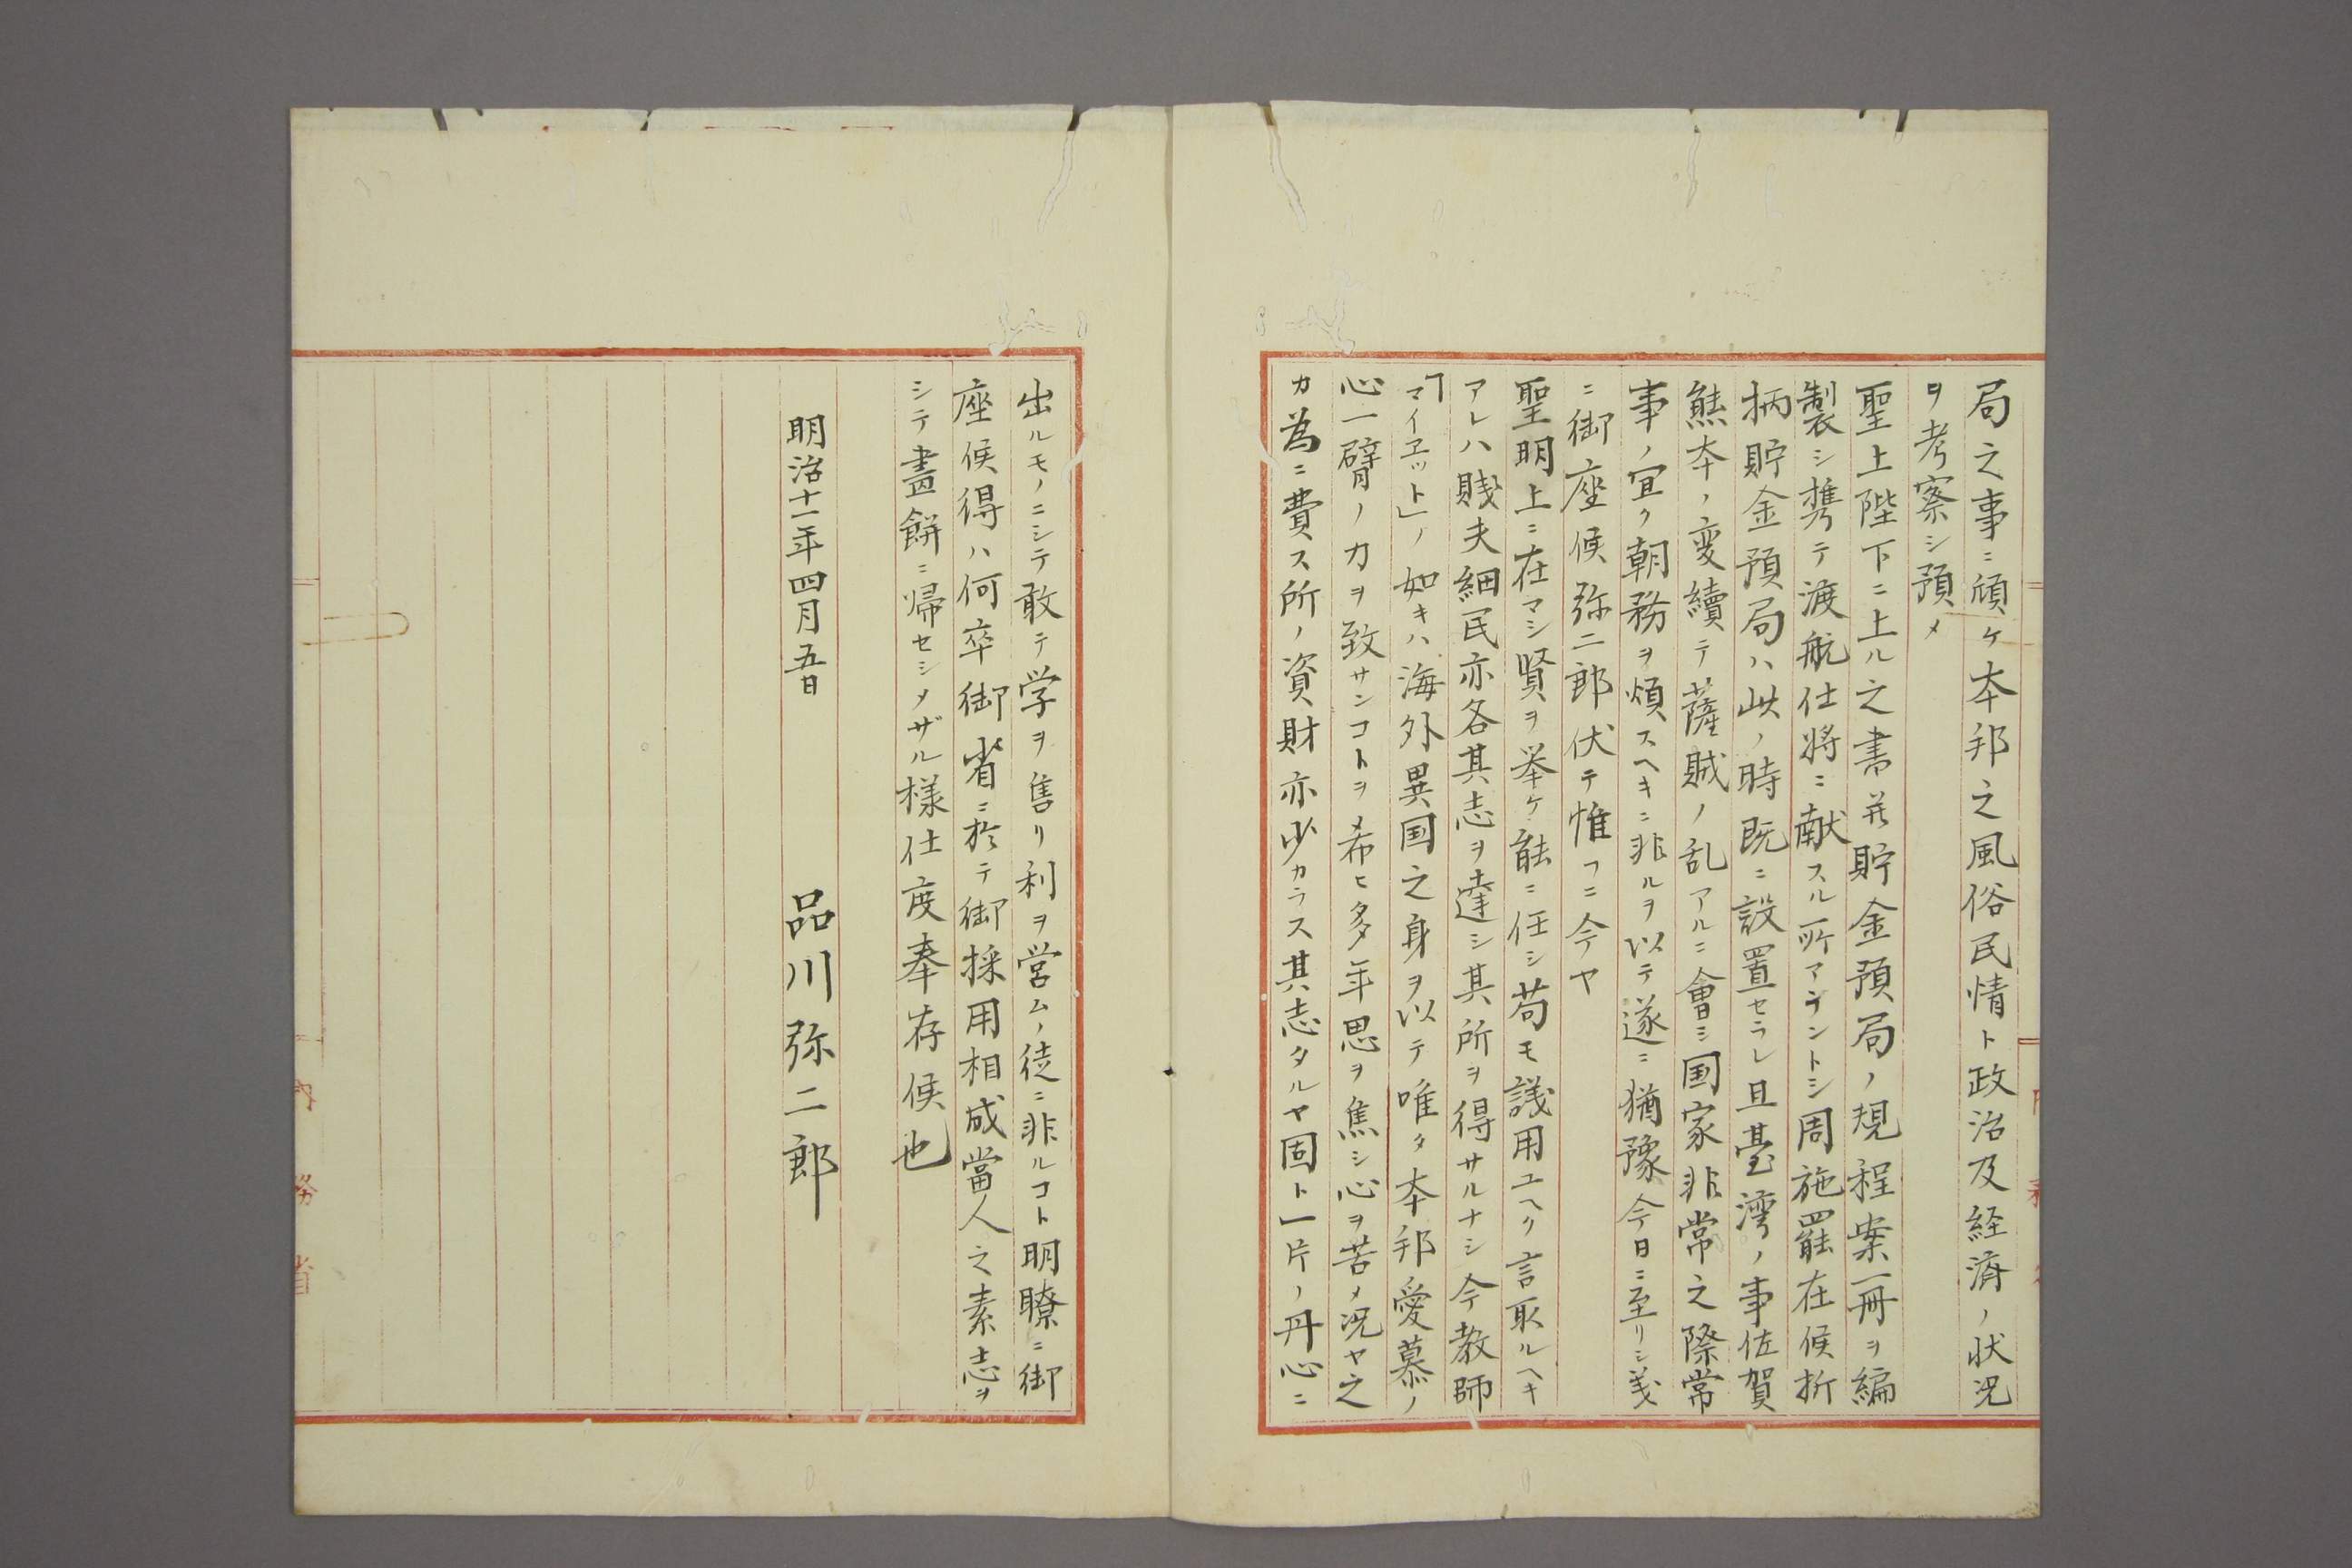 局之事ニ傾ケ本邦之風俗民情ト政治及経済ノ状況
ヲ考察シ預メ
聖上陛下ニ上ル之書并貯金預局ノ規程案一冊ヲ編
製シ携テ渡航仕将ニ献スル所アラントシ周施罷在候折
柄貯金預局ハ此ノ時既ニ設置セラレ且臺湾ノ事佐賀
熊本ノ変續テ薩賊ノ乱アルニ會シ国家非常之際常
事ノ宜ク朝務ヲ煩スヘキニ非ルヲ以テ遂ニ猶豫今日ニ至リシ義
ニ御座候弥二郎伏テ惟フニ今ヤ
聖明上ニ在マシ賢ヲ挙ケ能ニ任シ苟モ議用ユヘク言取ルヘキ
アレハ賎夫細民亦各其志ヲ達シ其所ヲ得サルナシ今教師
「マイヱット」ノ如キハ海外異国之身ヲ以テ唯タ本邦愛慕ノ
心一臂ノ力ヲ致サンコトヲ希ヒ多年思ヲ焦シ心ヲ苦メ況ヤ之
カ為ニ費ス所ノ資財亦少カラス其志タルヤ固ト一片ノ丹心ニ
出ルモノニシテ敢テ学ヲ售リ利ヲ営ムノ徒ニ非ルコト明瞭ニ御
座候得ハ何卒御省ニ於テ御採用相成當人之素志ヲ
シテ畫餅ニ帰セシメザル様仕度奉存候也
明治十一年四月五日
品川弥二郎
内務省